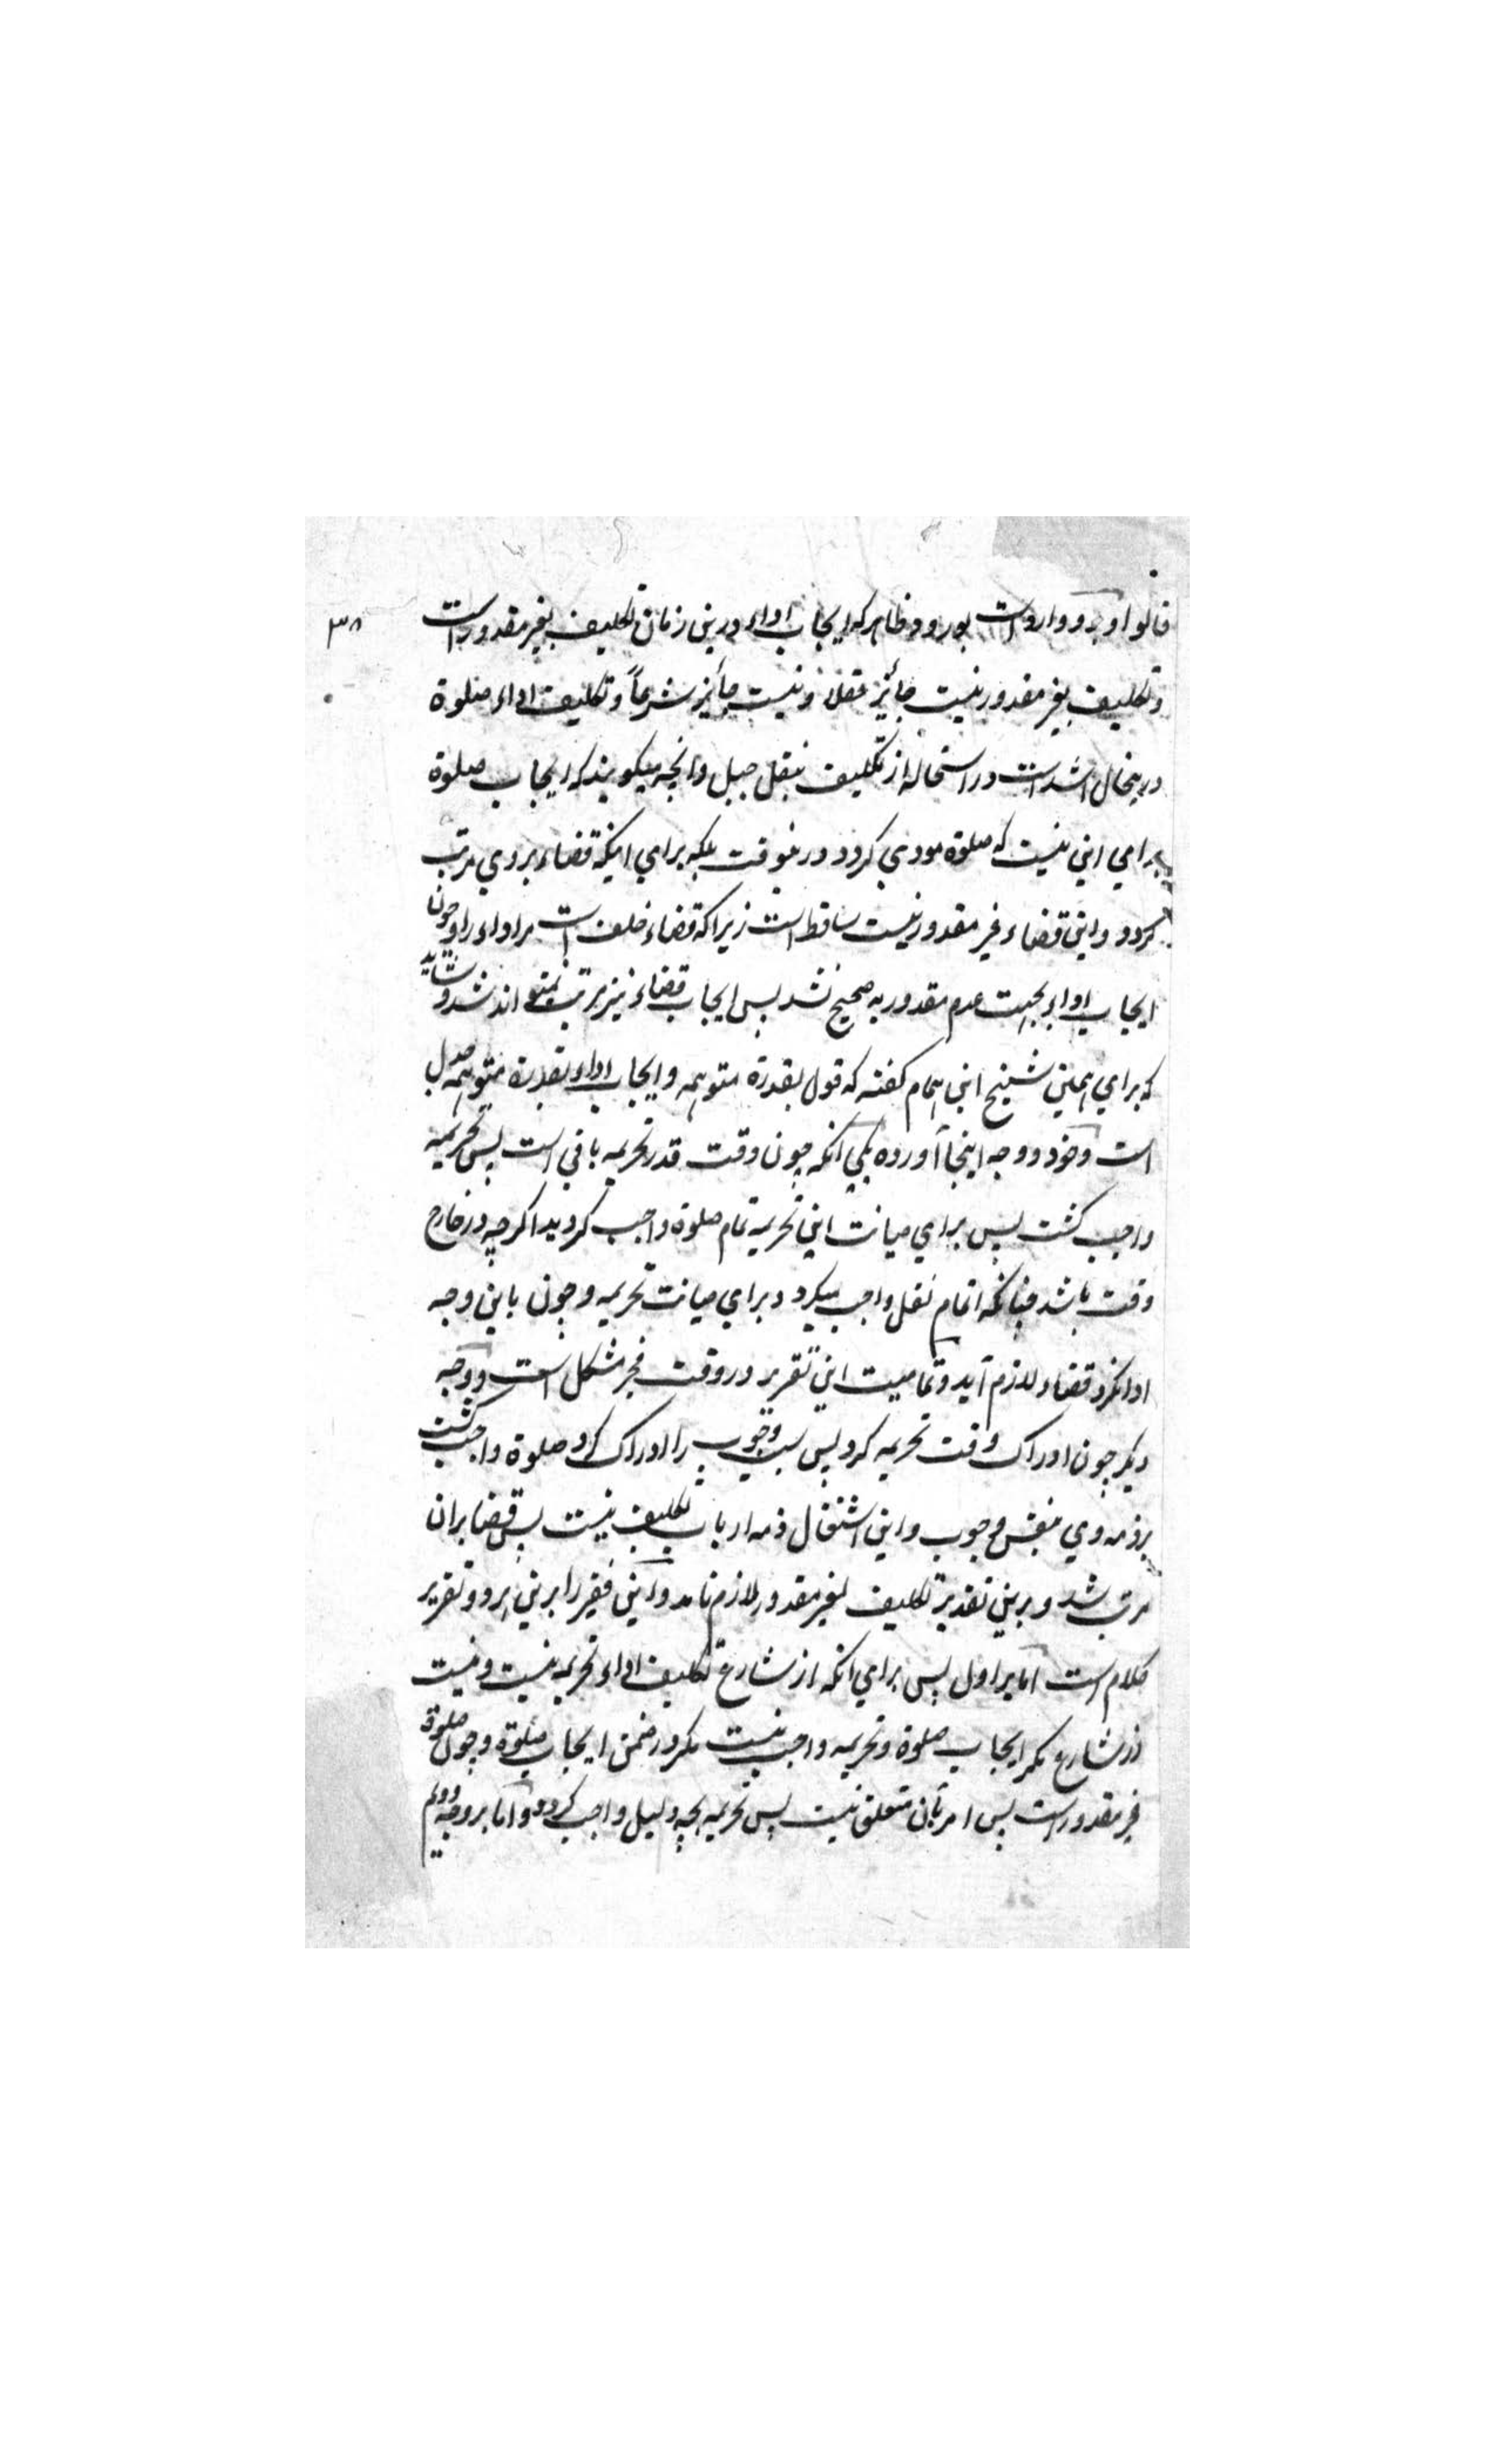 قالوا و برو وارد است بورود ظاهر که ایجاب اداء درین زمان تکلیف بغیر مقدور است
۳۸
وتکلیف بغیر مقدور نیست جائز عقلاً و نیست جائز شرعاً وتکلیف اداء صلوة
درینحال اشد است در استحاله از تکلیف بنقل جبل وانچه میگویند که ایجاب صلوة
برای این نیست که صلوة مودی گردد درینوقت بلکه برای اینکه قضاء بروی مرتب
گردد واین قضاء غیر مقدور نیست ساقط است زیرا که قضاء خلف است مر اداء را وچون
ایجاب اداء بجهت عدم مقدوریه صحیح نشد پس ایجاب قضاء نیز مرتب نمیتواند شد و شاید
که برای همین شیخ ابن همام گفته که قول بقدرة متوهمه وایجاب اداء بقدرة متوهمه
است وخود دو وجه اینجا آورده یکی آنکه چون وقت قدر تحریمه باقی است پس تحریمه
واجب گشت پس برای صیانت این تحریمه تمام صلوة واجب گردید اگرچه در خارج
وقت باشد چنانکه اتمام نفل واجب میگردد برای صیانت تحریمه وچون باین وجه
ادا نکرد قضاء لازم آید وتمامیت این تقریر در وقت فجر مشکل است ووجه
دیگر چون ادراک وقت تحریمه کرد پس سبب وجوب را ادراک کرد و صلوة واجب گشت
برذمه وی بنفس وجوب واین اشتغال ذمه از باب تکلیف نیست پس قضا بران
مرتب شد و برین تقدیر تکلیف بغیر مقدور لازم نامد واین فقیر را برین هر دو تقریر
کلام است اما بر اول پس برای آنکه از شارع تکلیف اداء تحریمه نیست ونیست
از شارع مگر ایجاب صلوة وتحریمه واجب نیست مگر در ضمن ایجاب صلوة وچون صلوة
غیر مقدور است پس امر بآن متعلق نیست پس تحریمه بچه دلیل واجب گردد واما بر وجه دوم